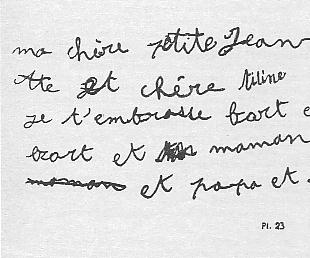 ma chère petite Jean
tte et chére tiline
je t'embrasse bart e
bzart et maman
maman et papa et.
Pl. 23